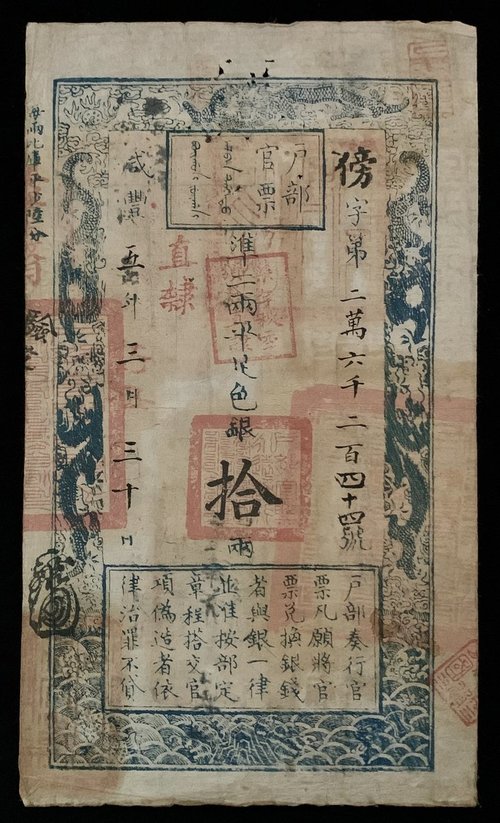 字第二萬六千二百四十四號
戶部
官票
準二兩平足色銀拾兩
直隸
咸豐五年三月三十日
每兩比庫平少陸分
戶部奏行官
票凡願將官
票兌換銀錢
者與銀一律
並准按部定
章程搭交官
項偽造者依
律治罪不貸